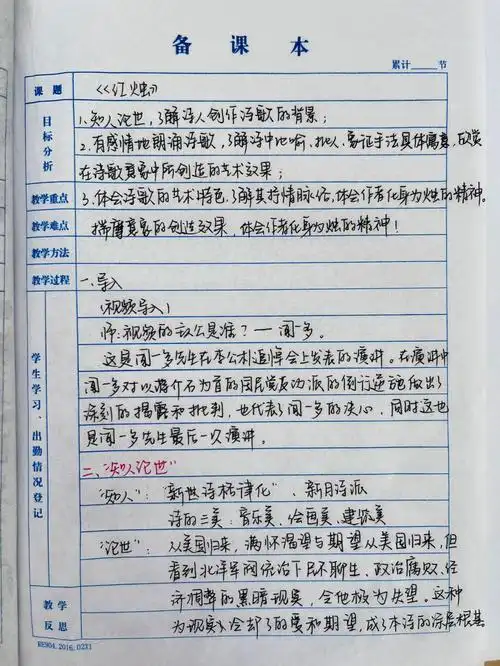 备课本
累计____节
课题 《红烛》
目标分析
1.知人论世,了解诗人创作诗歌的背景;
2.有感情地朗诵诗歌,了解诗中比喻、拟人、象征手法具体寓意,欣赏
在诗歌意象中所创造的艺术效果;
教学重点 3.体会诗歌的艺术特色,了解其抒情脉络,体会作者化身为烛的精神。
教学难点 揣摩意象的创造效果,体会作者化身为烛的精神!
教学方法
教学过程 一.导入
(视频导入)
师:视频的主人公是谁?——闻一多。
这是闻一多先生在李公朴追悼会上发表的演讲。在演讲中
闻一多对以蒋介石为首的国民党反动派的倒行逆施做出了
深刻的揭露和批判,也代表了闻一多的决心,同时这也
是闻一多先生最后一次演讲。
学生学习、出勤情况登记
二、"知人论世"
"知人":"新世诗格律化"、新月诗派
诗的三美:音乐美、绘画美、建筑美
"论世":从美国归来,满怀渴望与期望从美国归来,但
看到北洋军阀统治下民不聊生、政治腐败、经
济凋弊的黑暗现实,令他极为失望。这种
教学反思
为现实冷却了的爱和期望,成了本诗的深层根基
RE904.2016.02X1